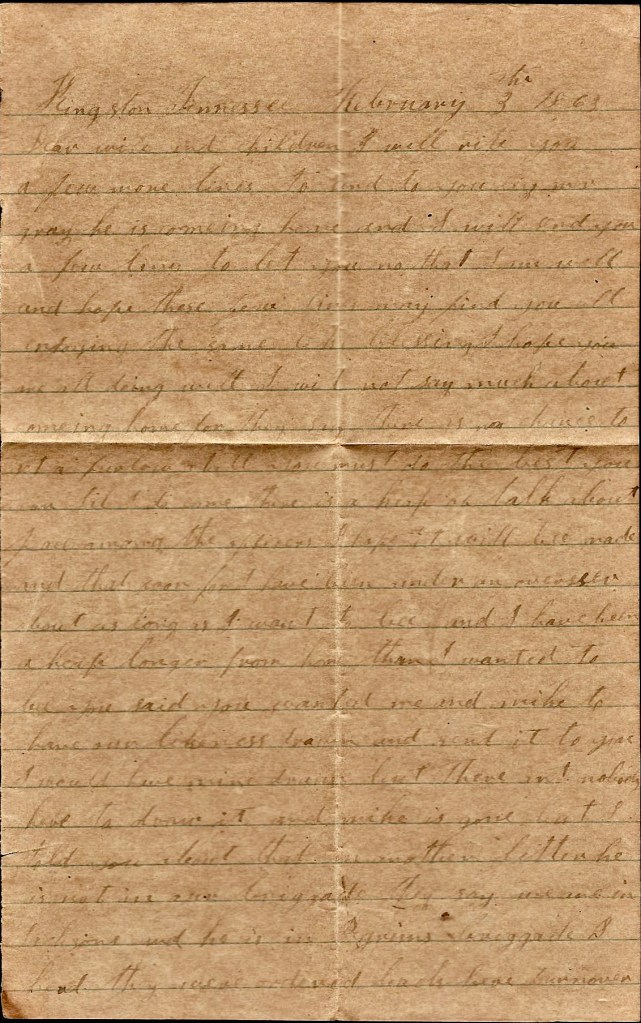 Kingston Tennessee February 3th 1863
Dear wife and children I will rite you
a few more lines to send to you by mr
gray he is comeing home and I will send you
a few lines to let you no that I am well
and hope these few lines may find you all
enjoying the same blessing I hope you
are all doing well I will not say much about
comeing home for they say there is no chance to
get a furlow still you must do the best you
can till I do come there is a heap of talk about
peace among the officers I hope it will bee made
and that soon for I have been under an overseer
about as long as I want to bee and I have been
a heap longer from home than I wanted to
bee you said you wanted me and mike to
have our likeness drawn and send it to you
I would have mine drawn but there aint nobody
here to draw it and mike is gone but I
told you about that in another letter he
is not in our briggade they say we are in
and he is in briggade I
they was ordered back here